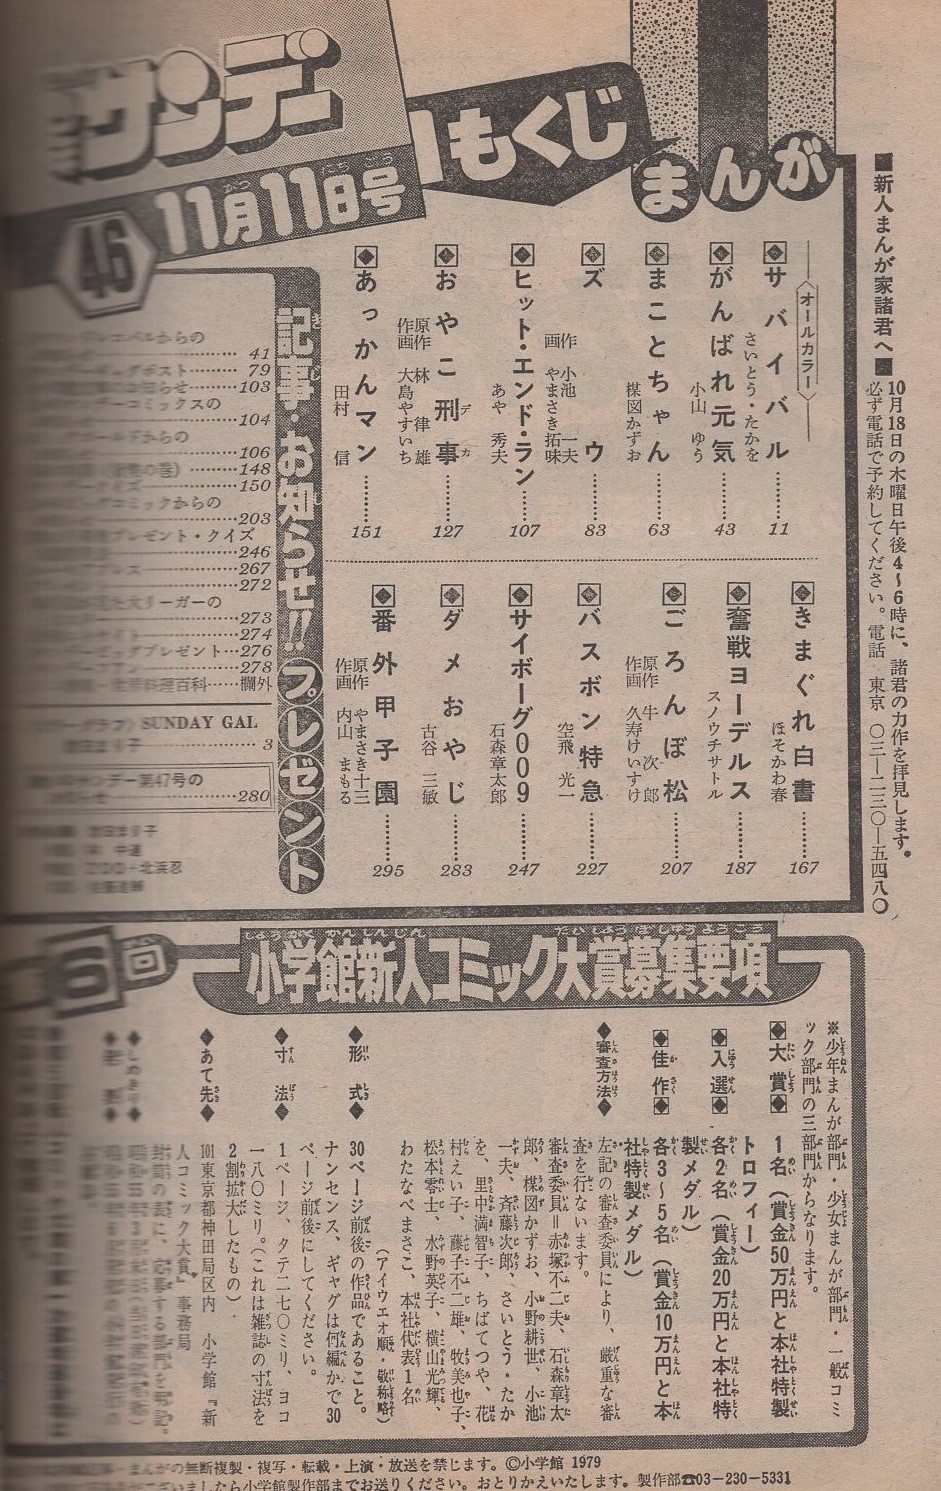 サンデー
46
11月11日号
もくじ
まんが
〈オールカラー〉
サバイバル さいとう・たかを 11
がんばれ元気 小山ゆう 43
まことちゃん 楳図かずお 63
ズウ 作 小池一夫 画 やまさき拓味 83
ヒット・エンド・ラン あや秀夫 107
おやこ刑事 原作 林律雄 作画 大島やすいち 127
あっかんマン 田村信 151
きまぐれ白書 ほそかわ春 167
奮戦ヨーデルス スノウチサトル 187
ごろんぼ松 原作 牛次郎 作画 久寿けいすけ 207
バスボン特急 空飛光一 227
サイボーグ009 石森章太郎 247
ダメおやじ 古谷三敏 283
番外甲子園 原作 やまさき十三 作画 内山まもる 295
記事・お知らせ!!プレゼント
からの
41
79
らせ 103
コミックスの
104
ールドからの
106
の巻) 148
イズ 150
コミックからの
203
プレゼント・クイズ
246
267
272
大リーガーの
273
274
プレゼント 276
278
料理百科 欄外
SUNDAY GAL
3
デー第47号の
280
北浜忍
■新人まんが家諸君へ■
10月18日の木曜日午後4〜6時に、諸君の力作を拝見します。
必ず電話で予約してください。電話 東京 〇三―二三〇―五四八〇
6回
小学館新人コミック大賞募集要項
※少年まんが部門・少女まんが部門・一般コミ
ック部門の三部門からなります。
◆大賞◆ 1名(賞金50万円と本社特製
トロフィー)
◆入選◆ 各2名(賞金20万円と本社特
製メダル)
◆佳作◆ 各3〜5名(賞金10万円と本
社特製メダル)
◆審査方法◆ 左記の審査委員により、厳重な審
査を行ないます。
審査委員=赤塚不二夫、石森章太
郎、楳図かずお、小野耕世、小池
一夫、斉藤次郎、さいとう・たか
を、里中満智子、ちばてつや、花
村えい子、藤子不二雄、牧美也子、
松本零士、水野英子、横山光輝、
わたなべまさこ、本社代表1名
(アイウエオ順・敬称略)
◆形式◆ 30ページ前後の作品であること。
ナンセンス、ギャグは何編かで30
ページ前後にしてください。
◆寸法◆ 1ページ、タテ二七〇ミリ、ヨコ
一八〇ミリ。(これは雑誌の寸法を
2割拡大したもの)
◆あて先◆ 101東京都神田局区内 小学館『新
人コミック大賞』事務局
封筒の表に、応募する部門を明記。
◆しめきり◆
まんがの無断複製・複写・転載・上演・放送を禁じます。©小学館 1979
ございましたら小学館製作部までお送りください。おとりかえいたします。製作部☎03-230-5331